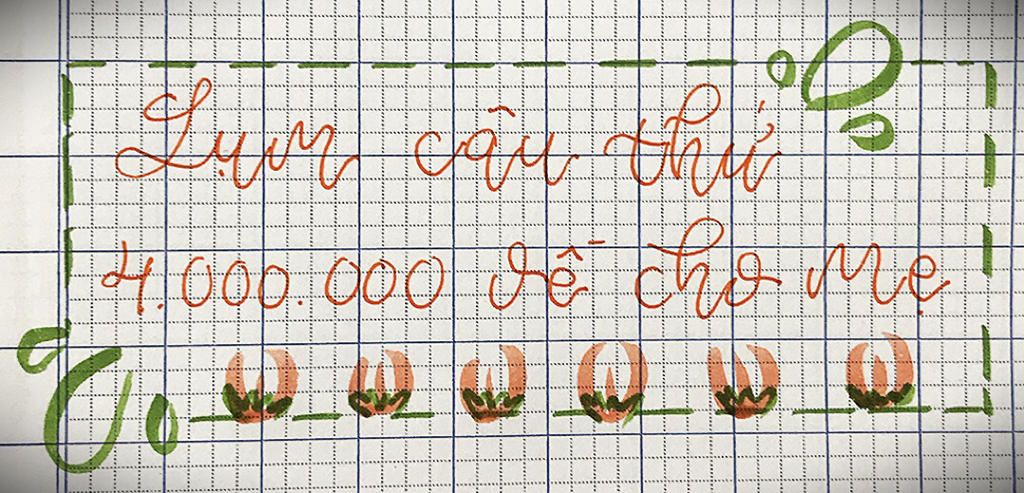 Lụm câu thứ
4.000.000 về cho Mẹ